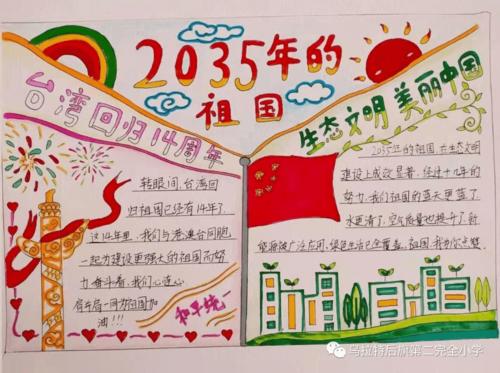 2035年的
祖国
台湾回归14周年
生态文明 美丽中国
转眼间,台湾回
归祖国已经有14年了,
这14年里,我们与港澳台同胞
一起为建设更强大的祖国而努
力奋斗着,我们心连心
肩并肩一同为祖国加
油!!!
和平统一
2035年的祖国,在生态文明
建设上成效显著,经过十几年的
努力,我们祖国的蓝天更蓝了
水更清了,空气质量也提升了,新
能源被广泛应用,绿色生活已全覆盖,祖国,我为你点赞.
乌拉特后旗第二完全小学